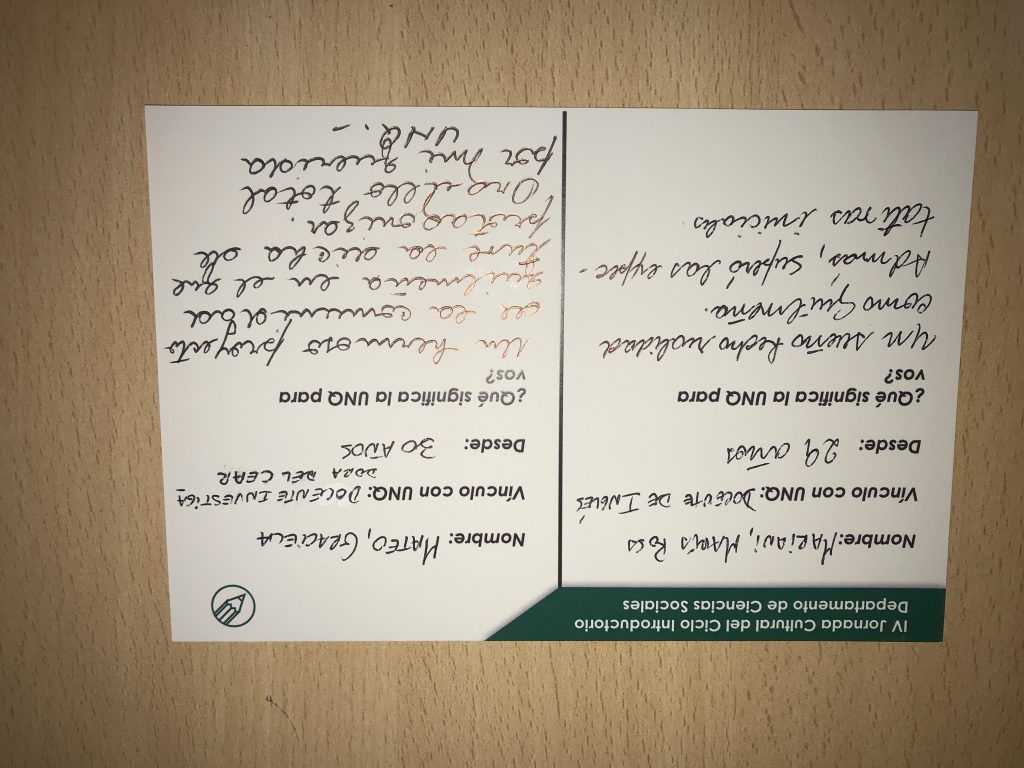 IV Jornada Cultural del Ciclo Introductorio
Departamento de Ciencias Sociales
Nombre: MARIANI, MARÍS
Vínculo con UNQ: DOCENTE DE INGLÉS
Desde: 29 años
¿Qué significa la UNQ para
vos?
un sueño hecho realidad
como quilmeña.
Admas, superó las expec-
tativas iniciales
Nombre: MATEO, GRACIELA
Vínculo con UNQ: DOCENTE INVESTIGA
DORA DEL CEAR
Desde: 30 AÑOS
¿Qué significa la UNQ para
vos?
Un hermoso proyecto
de la comunidad
quilmeña en el que
tuve la dicha de
protagonizar.
Orgullo total
por mi querida
UNQ.-